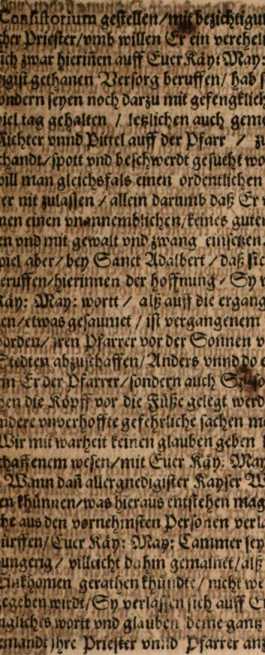 Consistorium gestellen/mit bezichtigun
cher Priester/vmb willen Er ein verehel
ich zwar hierinen auff Euer Käy: May:
digist gethanen Versorg beruffen/hab s
ondern seyen noch darzu mit gefengklich
viel tag gehalten / letzlichen auch geme
Richter vnnd Püttel auff der Pfarr / zu
chandt/spott vnd beschwerdt gesucht wo
will man gleichsfals einen ordentlichen
er nit zulassen / allein darumb daß Er v
nen einen vnannemblichen/keines gute
en vnd mit gewalt vnd zwang einsetzen.
viel aber/bey Sanct Adalbert / daß sic
eruffen/hierinnen der hoffnung / Sy w
Käy: May: wortt / alß auff die ergang
en/etwas gesaumet / ist vergangenem
orden/iren Pfarrer vor der Sonnen v
Stedten abzuschaffen/Anders vnnd do e
in Er der Pfarrer/sondern auch
hen die Köpff vor die Füße gelegt werd
ndere vnverhoffte gefehrliche sachen m
Wir mit warheit keinen glauben geben
chaffenem wesen/mit Euer Käy: May
Wann dañ allergnedigister Kayser W
en khünnen/was hieraus entstehen mag
he aus den vornehmsten Personen verl
ürffen/Euer Käy: May: Cammer sey
ungerig/villeicht dahin gemainet/alß
Einkhomen gerathen khündte/nicht we
gegeben wirdt/Sy verlassen sich auff E
nglichs wortt vnd glauben deme gantz
emandt ihre Priester vnnd Pfarrer anz